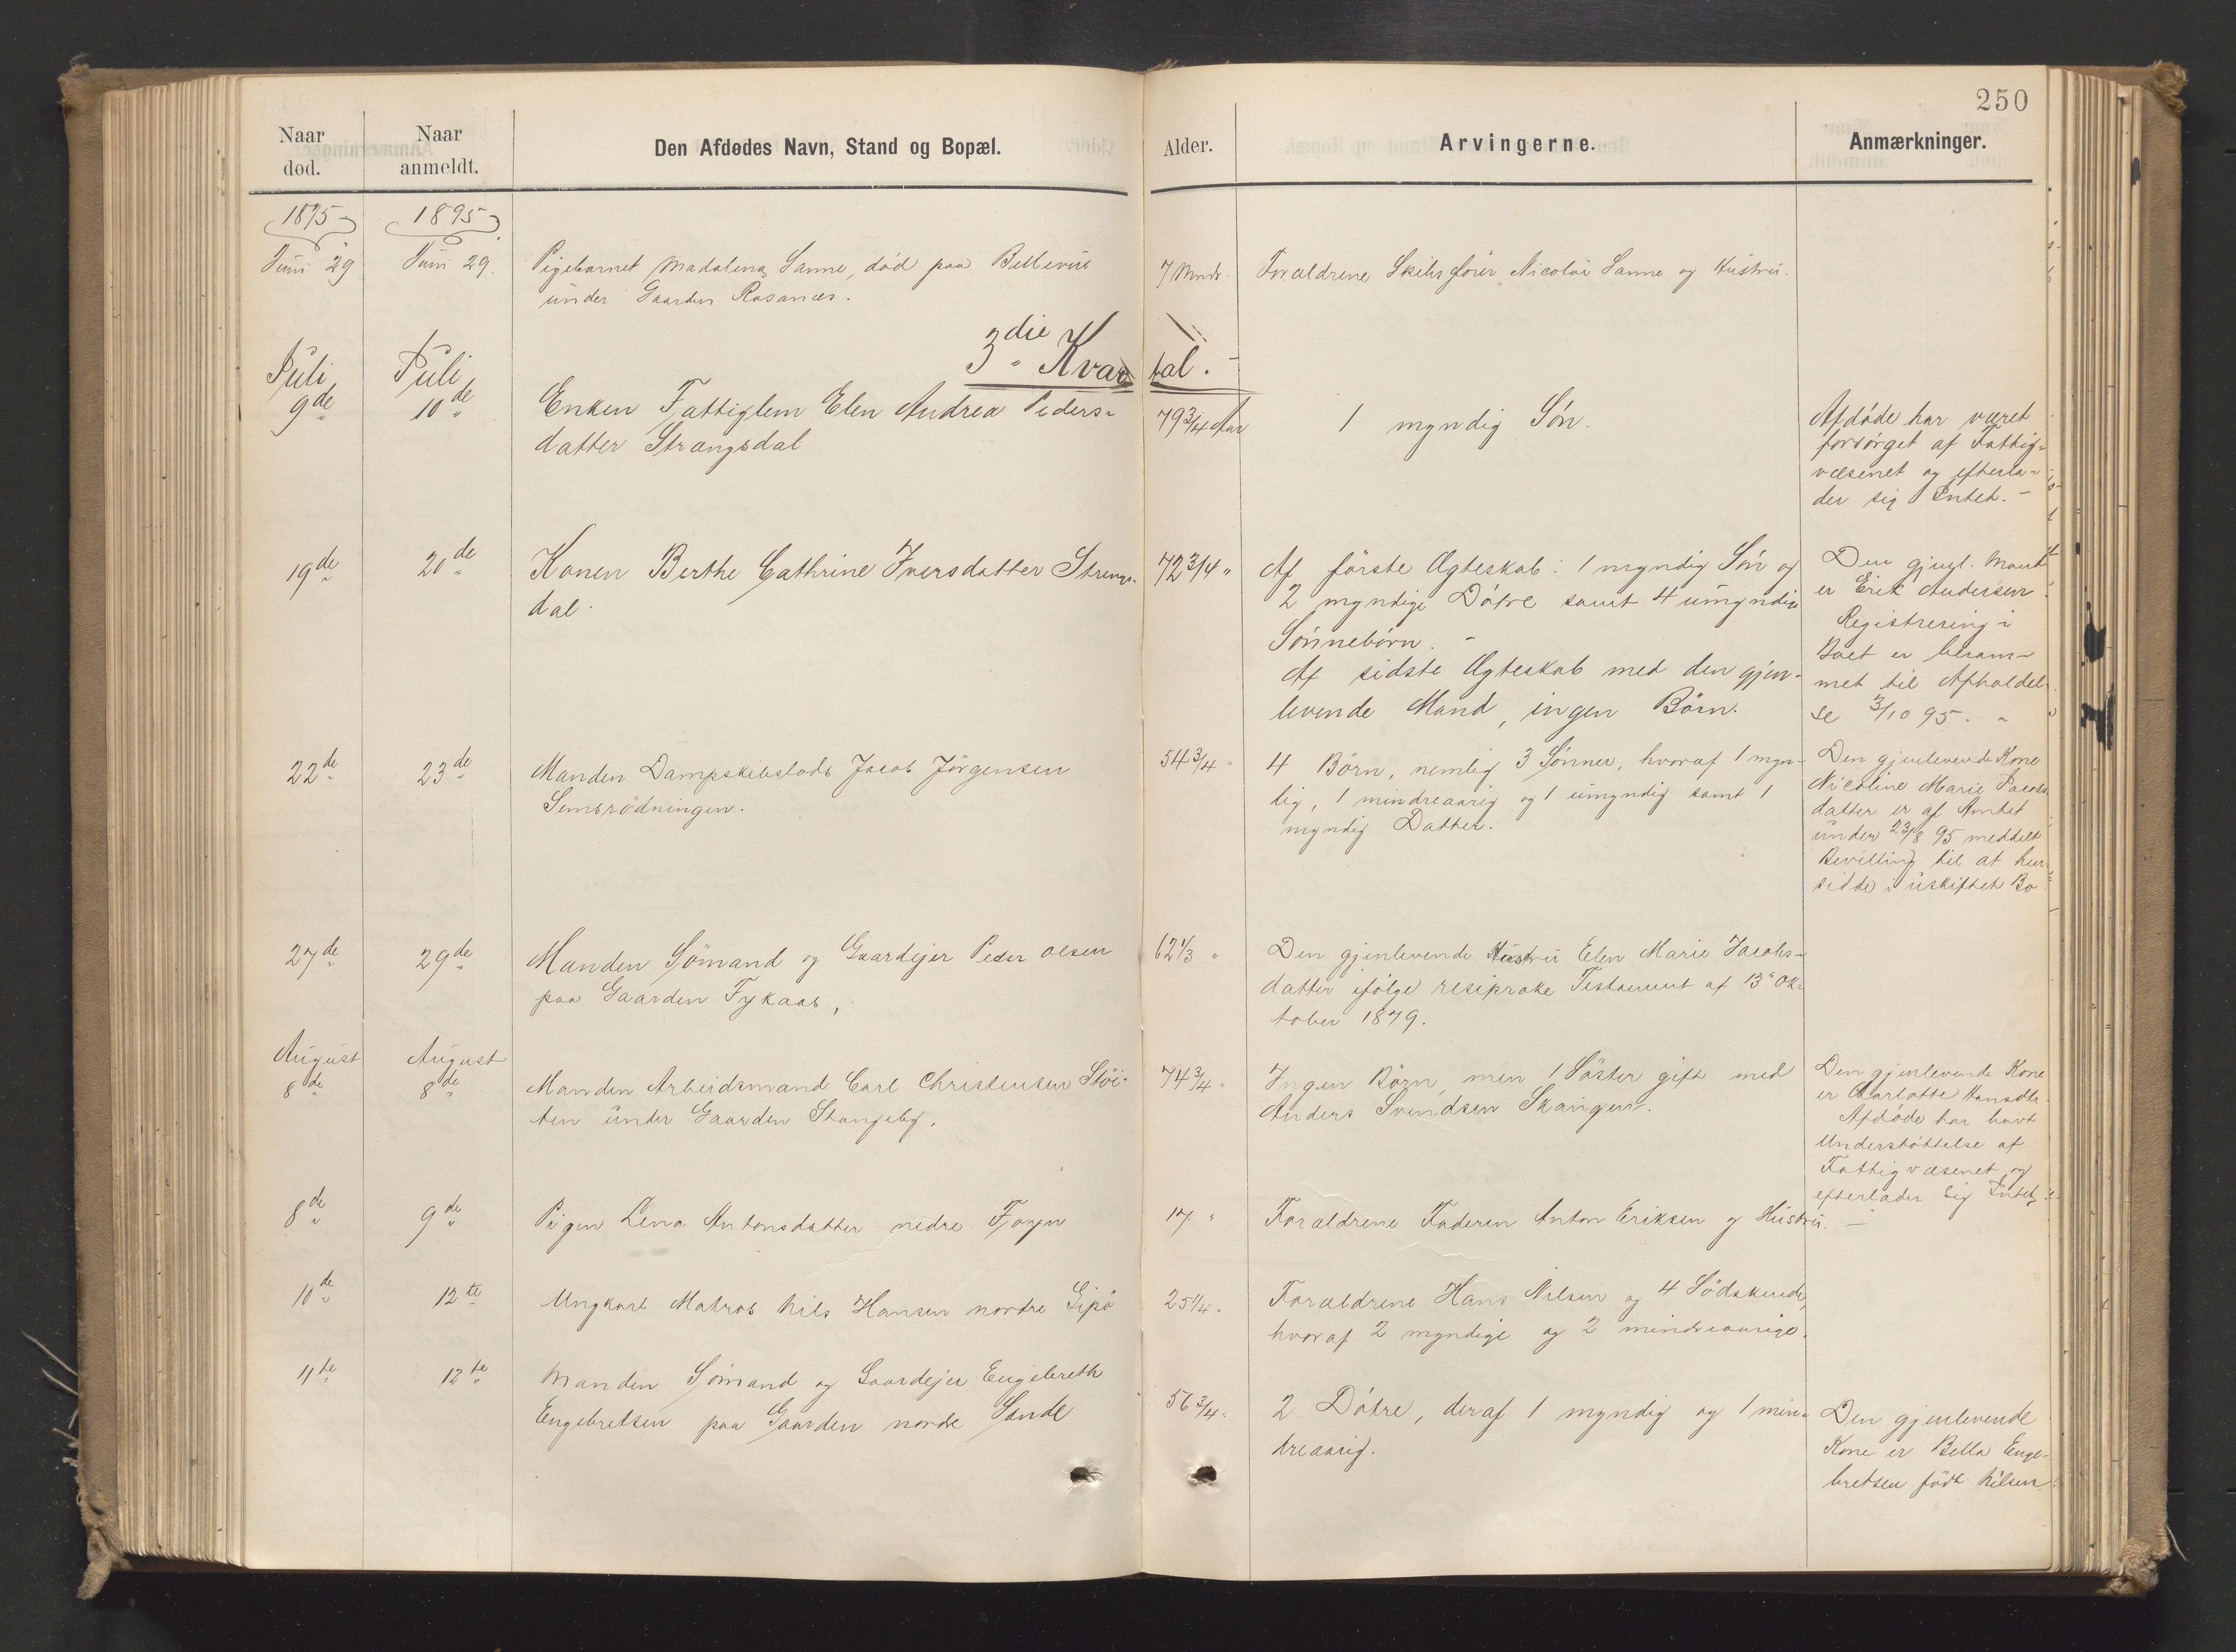 250
Naar død. Naar anmeldt. Den Afdødes Navn, Stand og Bopæl. Alder. Arvingerne. Anmærkninger.
1895 1895
Juni 29 Juni 29. Pigebarnet Madalena Sanne, død paa Bellevue 7 Mndr. Forældrene Skibsfører Nicolai Sanne og Hustru.
under Gaarden Rosanes.
3die Kvartal.
Juli Juli
9de 10de Enken Fattiglem Elen Andrea Peders- 79 3/4 Aar 1 myndig Søn. Afdøde har været
datter Strængsdal forsørget af Fattig-
væsenet og efterla-
der sig Intet. -
19de 20de Konen Berthe Cathrine Iversdatter Strengs- 72 3/4 " Af første Ægteskab: 1 myndig Søn og Den gjenl. Mand
dal. 2 myndige Døtre samt 4 umyndige er Erik Andersen.
Sønnebørn. - Registrering i
Boet er beram-
Af sidste Ægteskab med den gjen- met til Afholdel-
levende Mand, ingen Børn. se 3/10 95. "
22de 23de Manden Dampskibslods Jacob Jørgensen 54 3/4 " 4 Børn, nemlig 3 Sønner, hvoraf 1 myn- Den gjenlevende Kone
Semsrødningen. dig, 1 mindreaarig og 1 umyndig samt 1 Nicoline Marie Jacobs-
myndig Datter. datter er af Amtet
under 23/8 95 meddelt
Bevilling til at hen-
sidde i uskiftet Bo
27de 29de Manden Sømand og Gaardejer Peder Olsen 62 1/3 " Den gjenlevende Hustru Elen Marie Jacobs-
paa Gaarden Fykaas, datter ifølge resiproke Testament af 13" Ok-
tober 1879.
August August
8de 8de Manden Arbeidsmand Carl Christensen Støi- 74 3/4 " Ingen Børn, men 1 Søster gift med Den gjenlevende Kone
ten under Gaarden Stangeby. Anders Svendsen Skangen. er Charlotte Hansdtr.
Afdøde har havt
Understøttelse af
Fattigvæsenet og
efterlader sig Intet
8de 9de Pigen Lena Antonsdatter nedre Føyn 17 " Forældrene Faderen Anton Eriksen og Hustru. -
10de 12te Ungkarl Matros Nils Hansen nordre Gipø 25 1/4 " Forældrene Hans Nilsen og 4 Sødskende,
hvoraf 2 myndige og 2 mindreaarige.
11te 12te Manden Sømand og Gaardejer Engebreth 56 3/4 " 2 Døtre, deraf 1 myndig og 1 min- Den gjenlevende
Engebretsen paa Gaarden nordre Sande dreaarig. Kone er Bella Enge-
bretsen født Nilsen